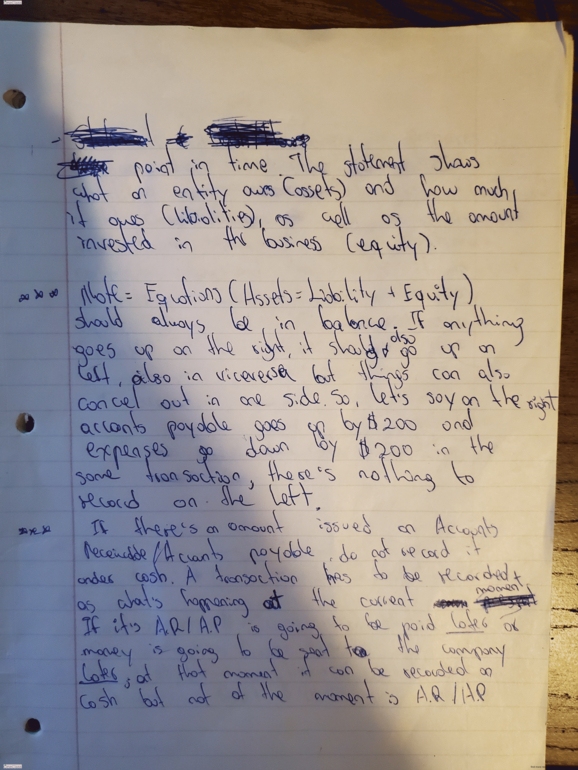 point in time. The statement shows
what an entity owns (assets) and how much
it owes (liabilities), as well as the amount
invested in the business (equity).
Note = Equations (Assets = Liability + Equity)
should always be in balance. If anything
goes up on the right, it should also go up on
left, also in viceversa but things can also
cancel out in one side. So, let's say on the right
accounts payable goes up by $200 and
expenses go down by $200 in the
same transaction, there's nothing to
record on the left.
If there's an amount issued on Accounts
Receivable/Accounts payable, do not record it
under cash. A transaction has to be recorded
as what's happening at the current moment
If it's A.R/A.P is going to be paid later or
money is going to be sent to the company
later, at that moment it can be recorded as
Cash but not at the moment is A.R/A.P